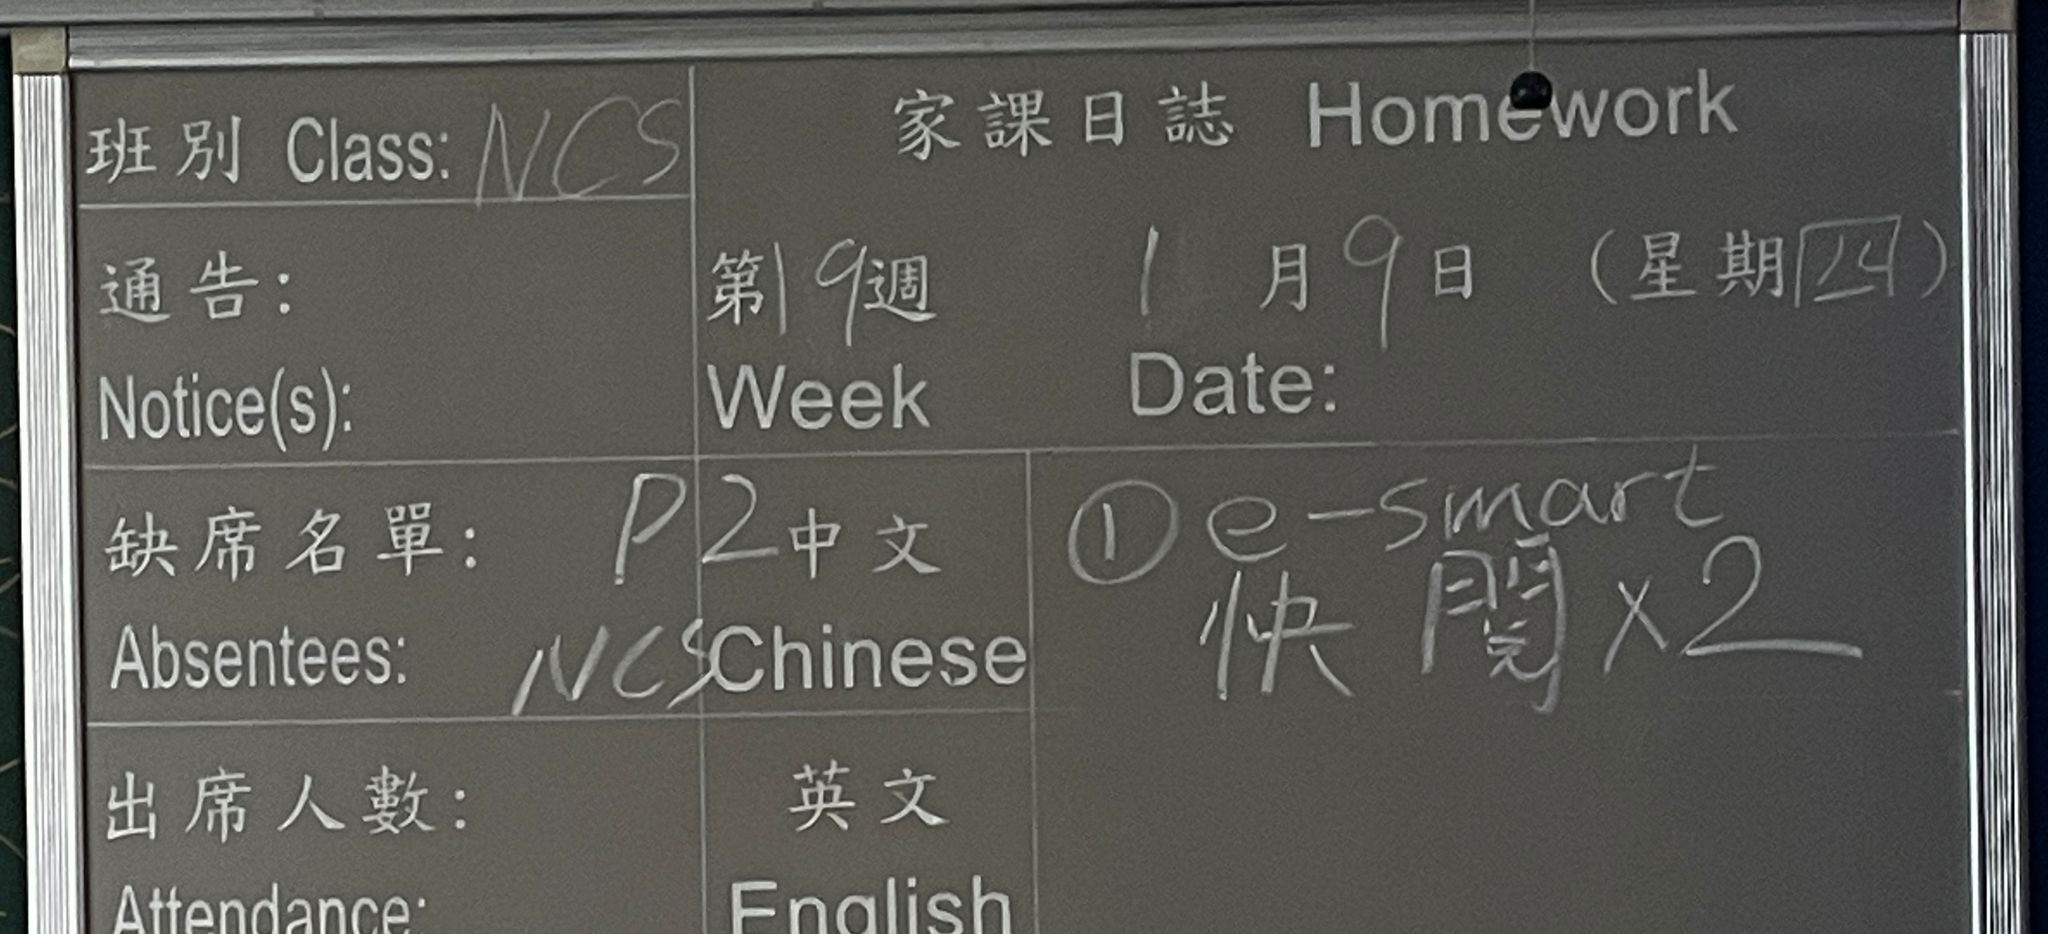 班別 Class: NCS
家課日誌 Homework
通告:
Notice(s):
第19週 1月9日 (星期四)
Week Date:
缺席名單:
Absentees:
P2 中文
NCS Chinese
① e-smart
快閱x2
出席人數:
Attendance:
英文
English